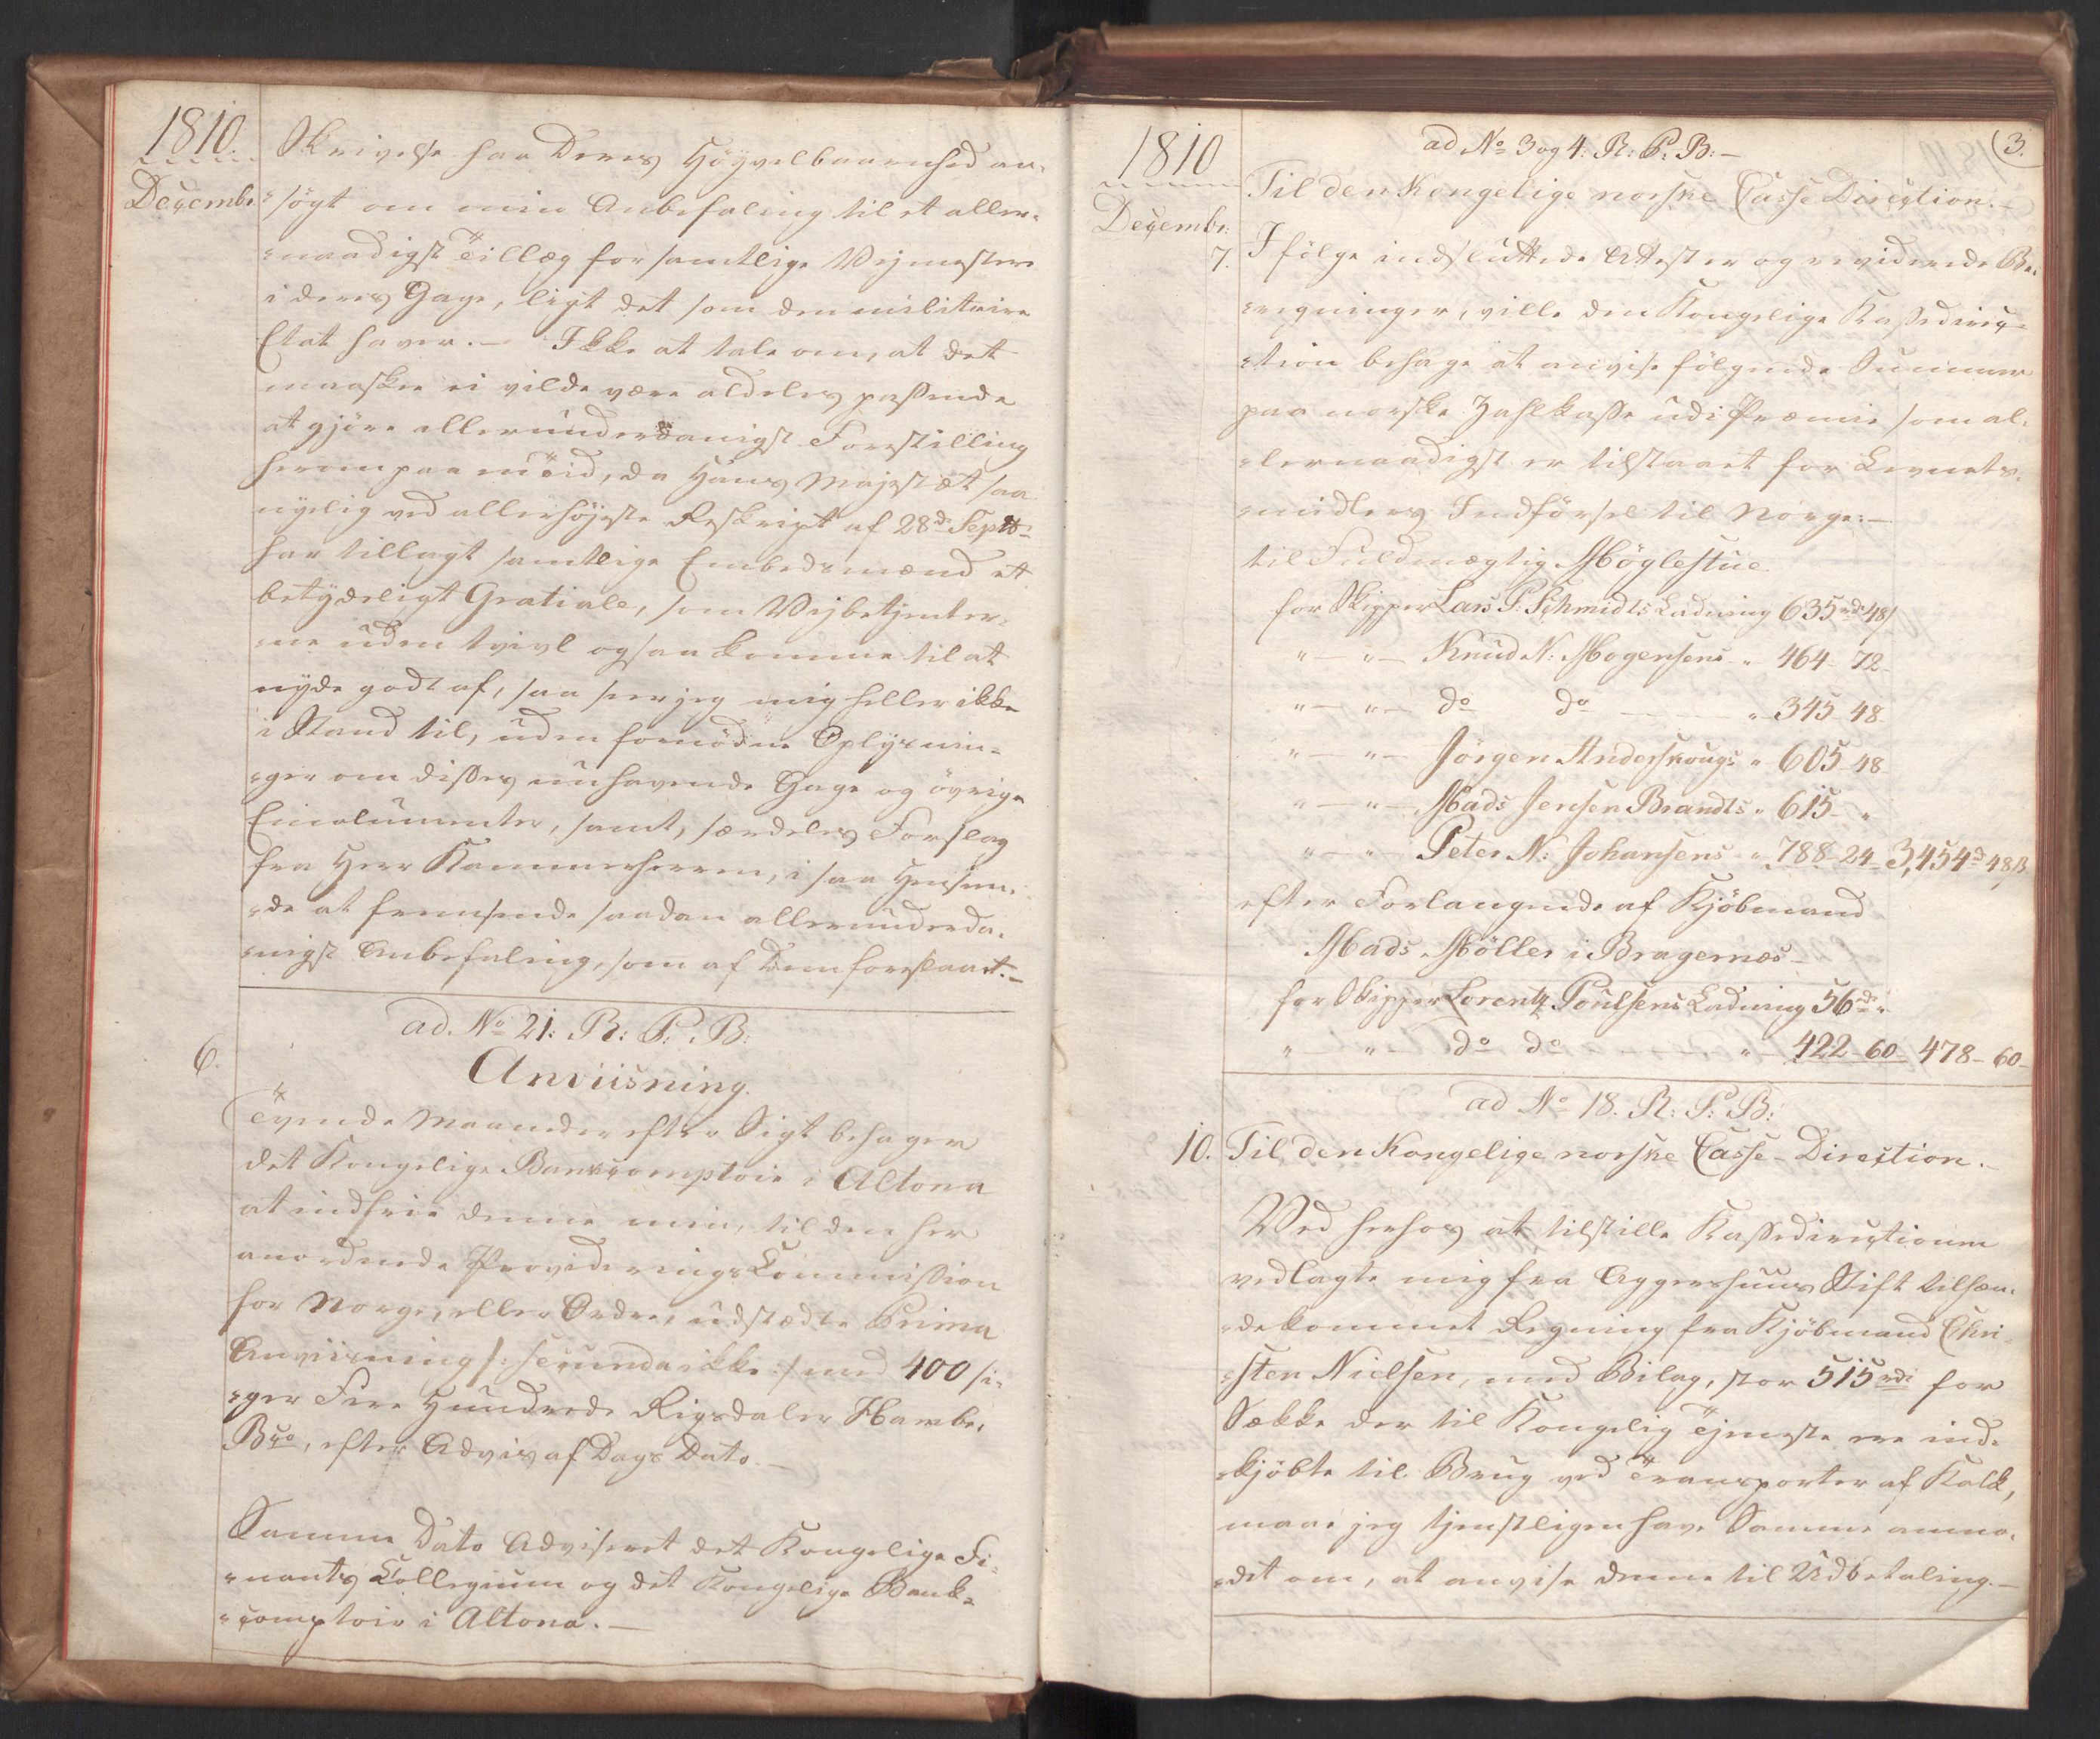 1810.
Decembr.
Skrivelse har Deres Höyvelbaarenhed an-
-søgt om min Anbefaling til et aller-
-naadigst Tillæg for samtlige Vejmestere
i deres Gage, ligt det som den militaire
Etat haver. – Ikke at tale om, at det
maaskee ei vilde være aldeles passende
at gjöre allerunderdanigst Forestilling
herom paa en Tid, da Hans Majestæt saa
nyelig ved allerhöjeste Reskript af 28de Septbr
har tillagt samtlige Embedsmænd et
betydeligt Gratiale, som Vejbetjenter-
-ne uden tvivl ogsaa komme til at
nyde godt af, saa seer jeg mig heller ikke
i Stand til, uden fornödne Oplysnin-
-ger om disses innhavende Gage og övrige
Emolumenter, samt, særdeles Forslag
fra Herr Kammerherren, i saa Henseen-
-de at fremsende saadan allerunderda-
-nigst Anbefaling, som af Dem foreslaaet. –
ad. No 21: R: P: B:
6.
Anviisning.
Tvende Maaneder efter Sigt behager
det Kongelige Bancocomptoir i Altona
at indfrie denne min, til den her
anordnede Provideringskommission
for Norge, eller Ordre, udstædte Prima
Anviisning /: secunda ikke :/ med 400 si-
-ger Fire Hundrede Rigsdaler Hambr.
Bco, efter Advis af Dags Dato. –
Samme Dato Adviseret det Kongelige Fi-
-nants Collegium og det Kongelige Bank-
-comptoir i Altona. –
1810
Decembr:
(3.
ad No 3 og 4: R: P: B: –
Til den Kongelige norske Casse Direction. –
7. Ifölge indsluttede Attester og reviderede Be-
-regninger, ville den Kongelige Kassedirec-
-tion behage at anvise fölgende Summer
paa norske Zahlkasse udi Præmie som al-
-lernaadigst er tilstaaet for Levnets-
-midlers Indförsel til Norge: –
til Fuldmægtig Möglestue
for Skipper Lars P: Schmidts Ladning 635rd 48/
" – " – Knud N: Mogensens " 464 – 72
" – " – do do – " 345 – 48
" – " – Jörgen Anderskougs " 605 – 48
" – " – Mads Jensen Brandts " 615 – "
" – " – Peter N: Johansens " 788 – 24 – 3,454d 48ß
efter Forlangende af Kjöbmand
Mads Möller i Bragernæs –
for Skipper Lorentz Poulsens Ladning 56rd "
" – " – do do – " – 422 – 60 – 478 – 60 –
ad No 18. R: P: B:
10. Til den Kongelige norske Casse-Direction. –
Ved herhos at tilstille Kassedirectionen
vedlagte mig fra Aggershuus Stift tilhæn-
-dekommet Regning fra Kjöbmand Chri-
-sten Nielsen, med Bilag, stor 515rdl for
Sække der til Kongelig Tjeneste ere ind-
-kjöbte til Brug ved Transporter af Kalk,
maae jeg tjenstligen have Samme anmo-
-det om, at anvise denne til Udbetaling. –